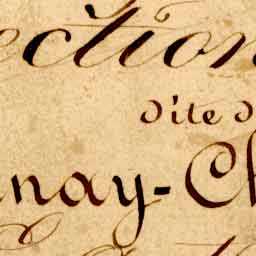 ection
dite d
nay-Ch